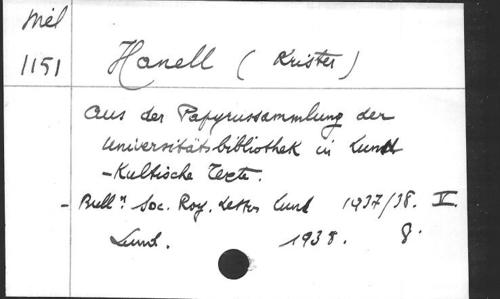 Mél
1151
Hanell (Krister)
Aus der Papyrussammlung der
Universitätsbibliothek in Lund
- Kultische Texte.
- Bull.n Soc. Roy. Lettres Lund 1937/38. V.
Lund. 1938. 8.